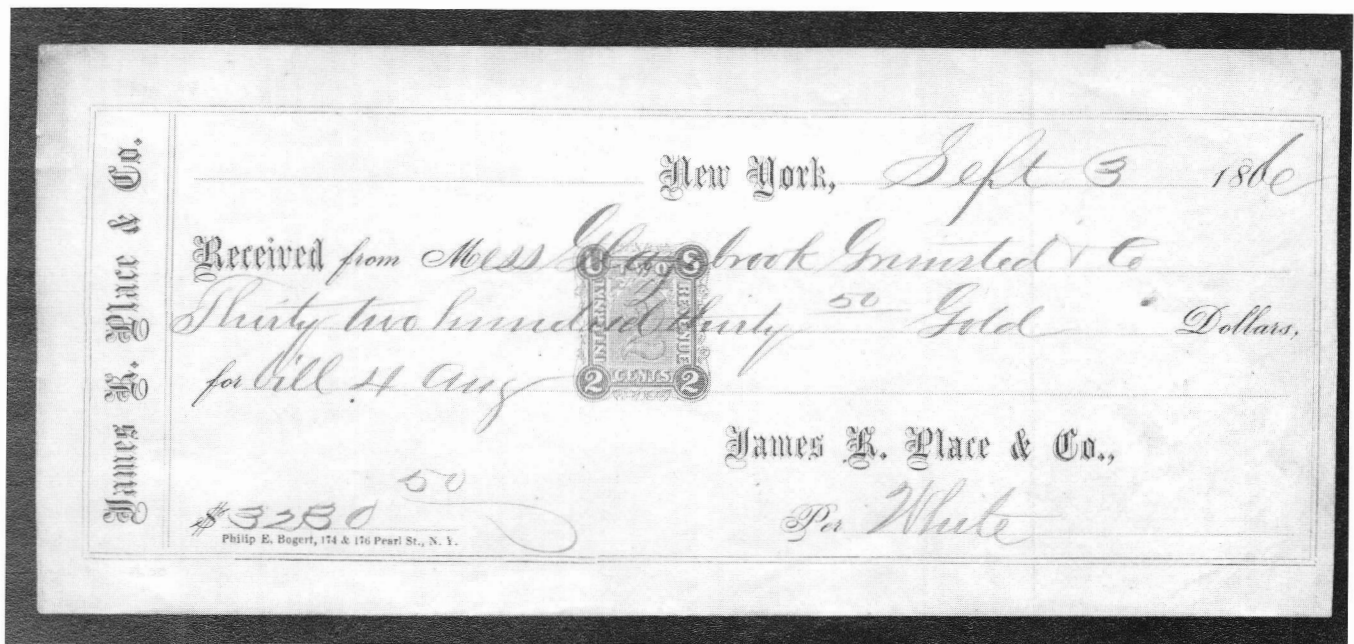 James K. Place & Co.
New York, Sept 3 1866
Received from Mess Glazebrook Grinsted & Co
Thirty two hundred thirty 50 Gold Dollars,
for bill 4 Aug
U.S. INTERNAL REVENUE
2 CENTS 2
James K. Place & Co.,
50
$ 3230
Per White
Philip E. Bogert, 174 & 176 Pearl St., N. Y.